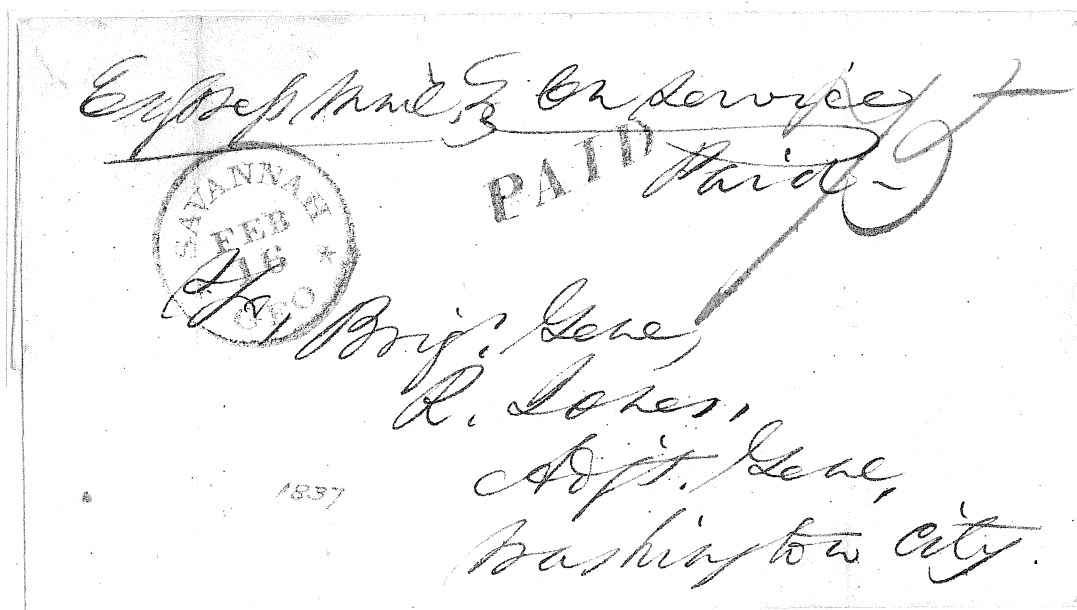 Express Mail, On Service
PAID
Paid
75
SAVANNAH
FEB
16
GEO
To, Brigr. Genl,
R. Jones,
Adjt. Genl,
Washington City.
1837